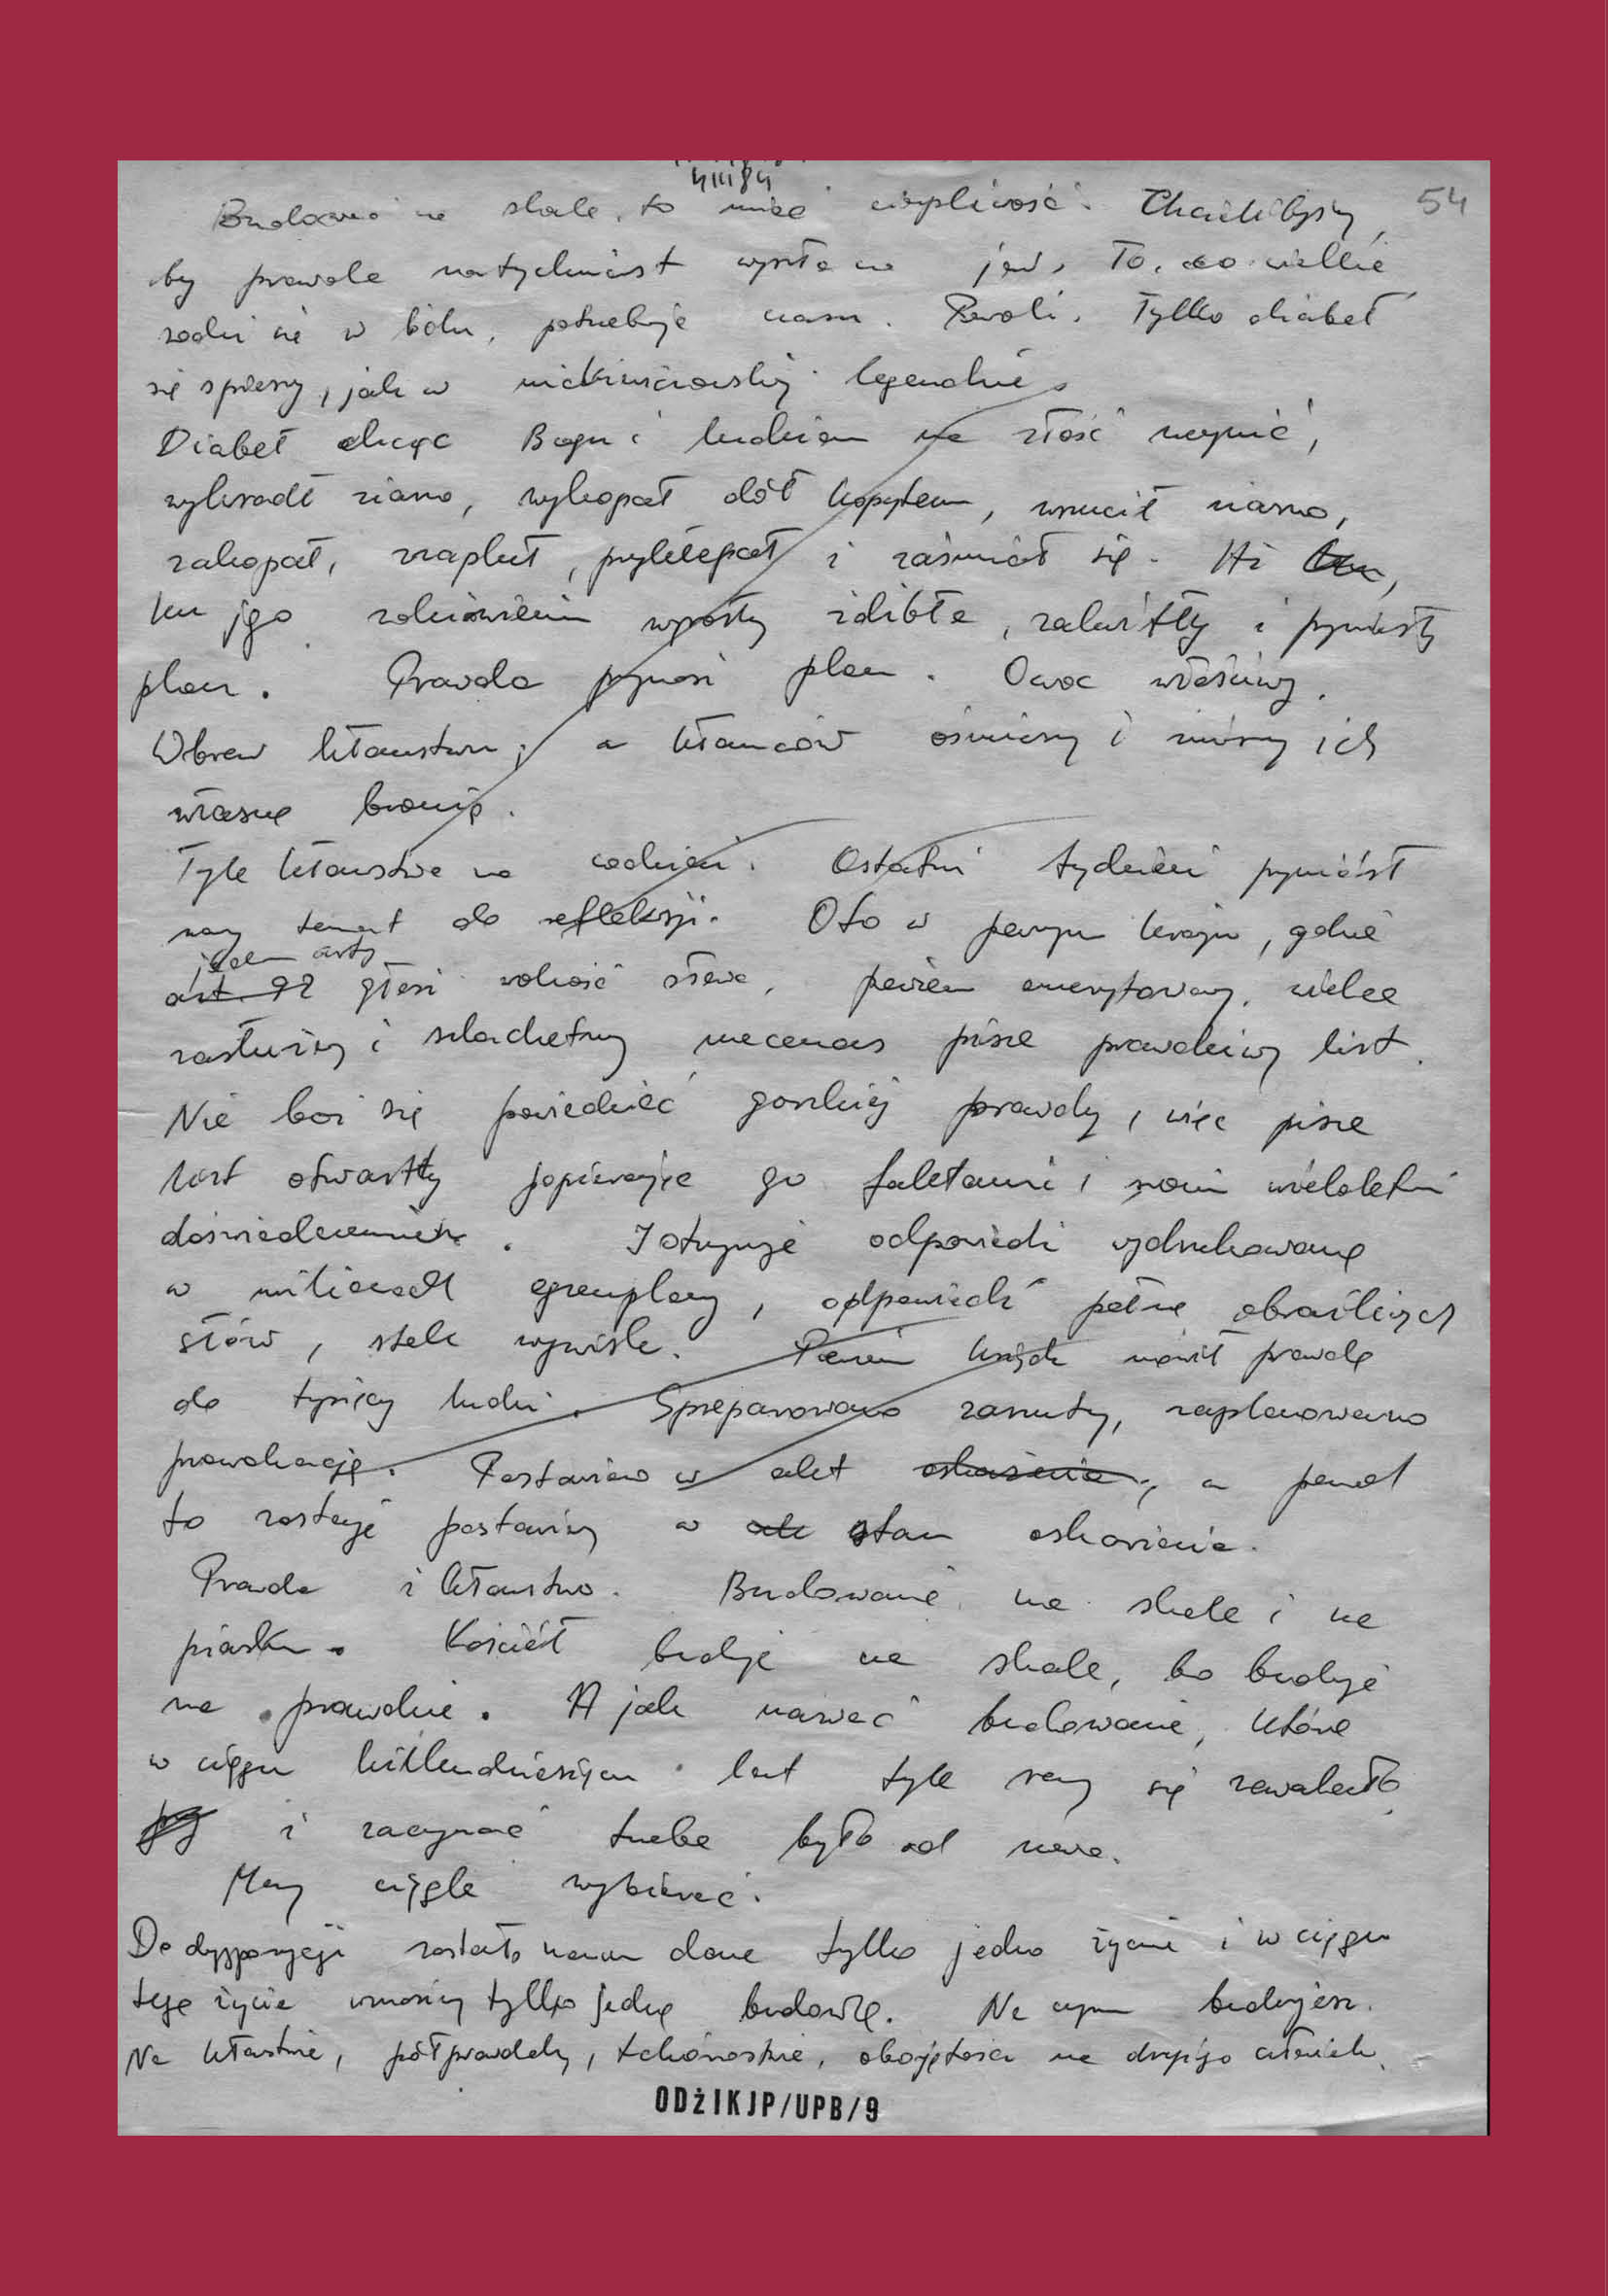 4 III 84
54
Budować na skale, to mieć cierpliwość. Chcielibyśmy,
by prawda natychmiast wyszła na jaw. To, co wielkie
rodzi się w bólu, potrzebuje czasu. Powoli. Tylko diabeł
się spieszy, jak w mickiewiczowskiej legendzie.
Diabeł chcąc Bogu i ludziom na złość uczynić,
wykradł ziarno, wykopał dół kopytem, wrzucił ziarno,
zakopał, napluł, przyklepał i zaśmiał się. Ai
ku jego zdziwieniu wyrosły źdźbła, zakwitły i przyniosły
plon. Prawda przynosi plon. Owoc właściwy.
Wbrew kłamstwu, a kłamców ośmieszy i zniszczy ich
własną bronią.
Tyle kłamstwa na codzień. Ostatni tydzień przyniósł
nam temat do refleksji. Oto w pewnym kraju, gdzie
jeden arty
art. 92 głosi wolność słowa, pewien emerytowany, wielce
zasłużony i szlachetny mecenas pisze prawdziwy list.
Nie boi się powiedzieć gorzkiej prawdy, więc pisze
list otwartty popierając go faktami i swoim wieloletni
doświadczeniem. I otrzymuje odpowiedź wydrukowaną
w milionach egzemplarzy, odpowiedź pełną obraźliwych
słów, stek wyzwisk. Pewien ksiądz mówił prawdę
do tysięcy ludzi. Spreparowano zarzuty, zaplanowano
prowokację. Postawiono w akt oskarżenia, a paweł
to zostaje postawiony w ak stan oskarżenia.
Prawda i kłamstwo. Budowanie na skale i na
piasku. Kościół buduje na skale, bo buduje
na prawdzie. A jak nazwać budowanie, które
w ciągu kilkudziesięciu lat tyle razy się zawalało
i zaczynać trzeba było od nowa.
Mamy ciągle wybierać.
Do dyspozycji zostało nam dane tylko jedno życie i w ciągu
tego życia wznosimy tylko jedną budowlę. Na czym budujesz.
Na kłamstwie, półprawdach, tchórzostwie, obojętności na drugiego człowieka.
ODŻIKJP/UPB/9